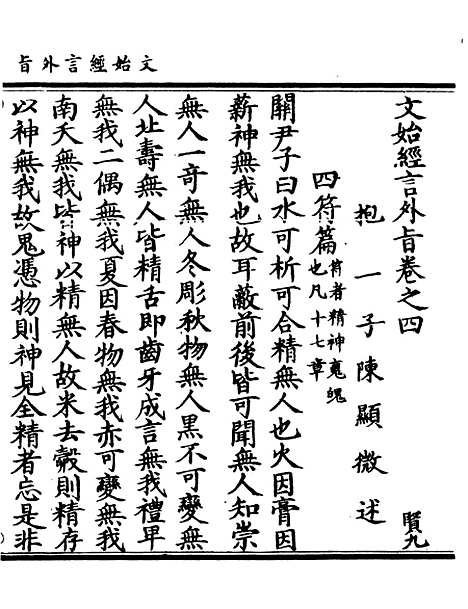 文始經言外旨
文始經言外旨卷之四
賢九
抱一子陳顯微述
四符篇
符者精神䰟魄
也凡十七章
關尹子曰水可析可合精無人也火因膏因
薪神無我也故耳蔽前後皆可聞無人知崇
無人一奇無人冬彫秋物無人黑不可變無
人北壽無人皆精舌即齒牙成言無我禮卑
無我二偶無我夏因春物無我赤可變無我
南夭無我皆神以精無人故米去縠則精存
以神無我故鬼憑物則神見全精者忘是非